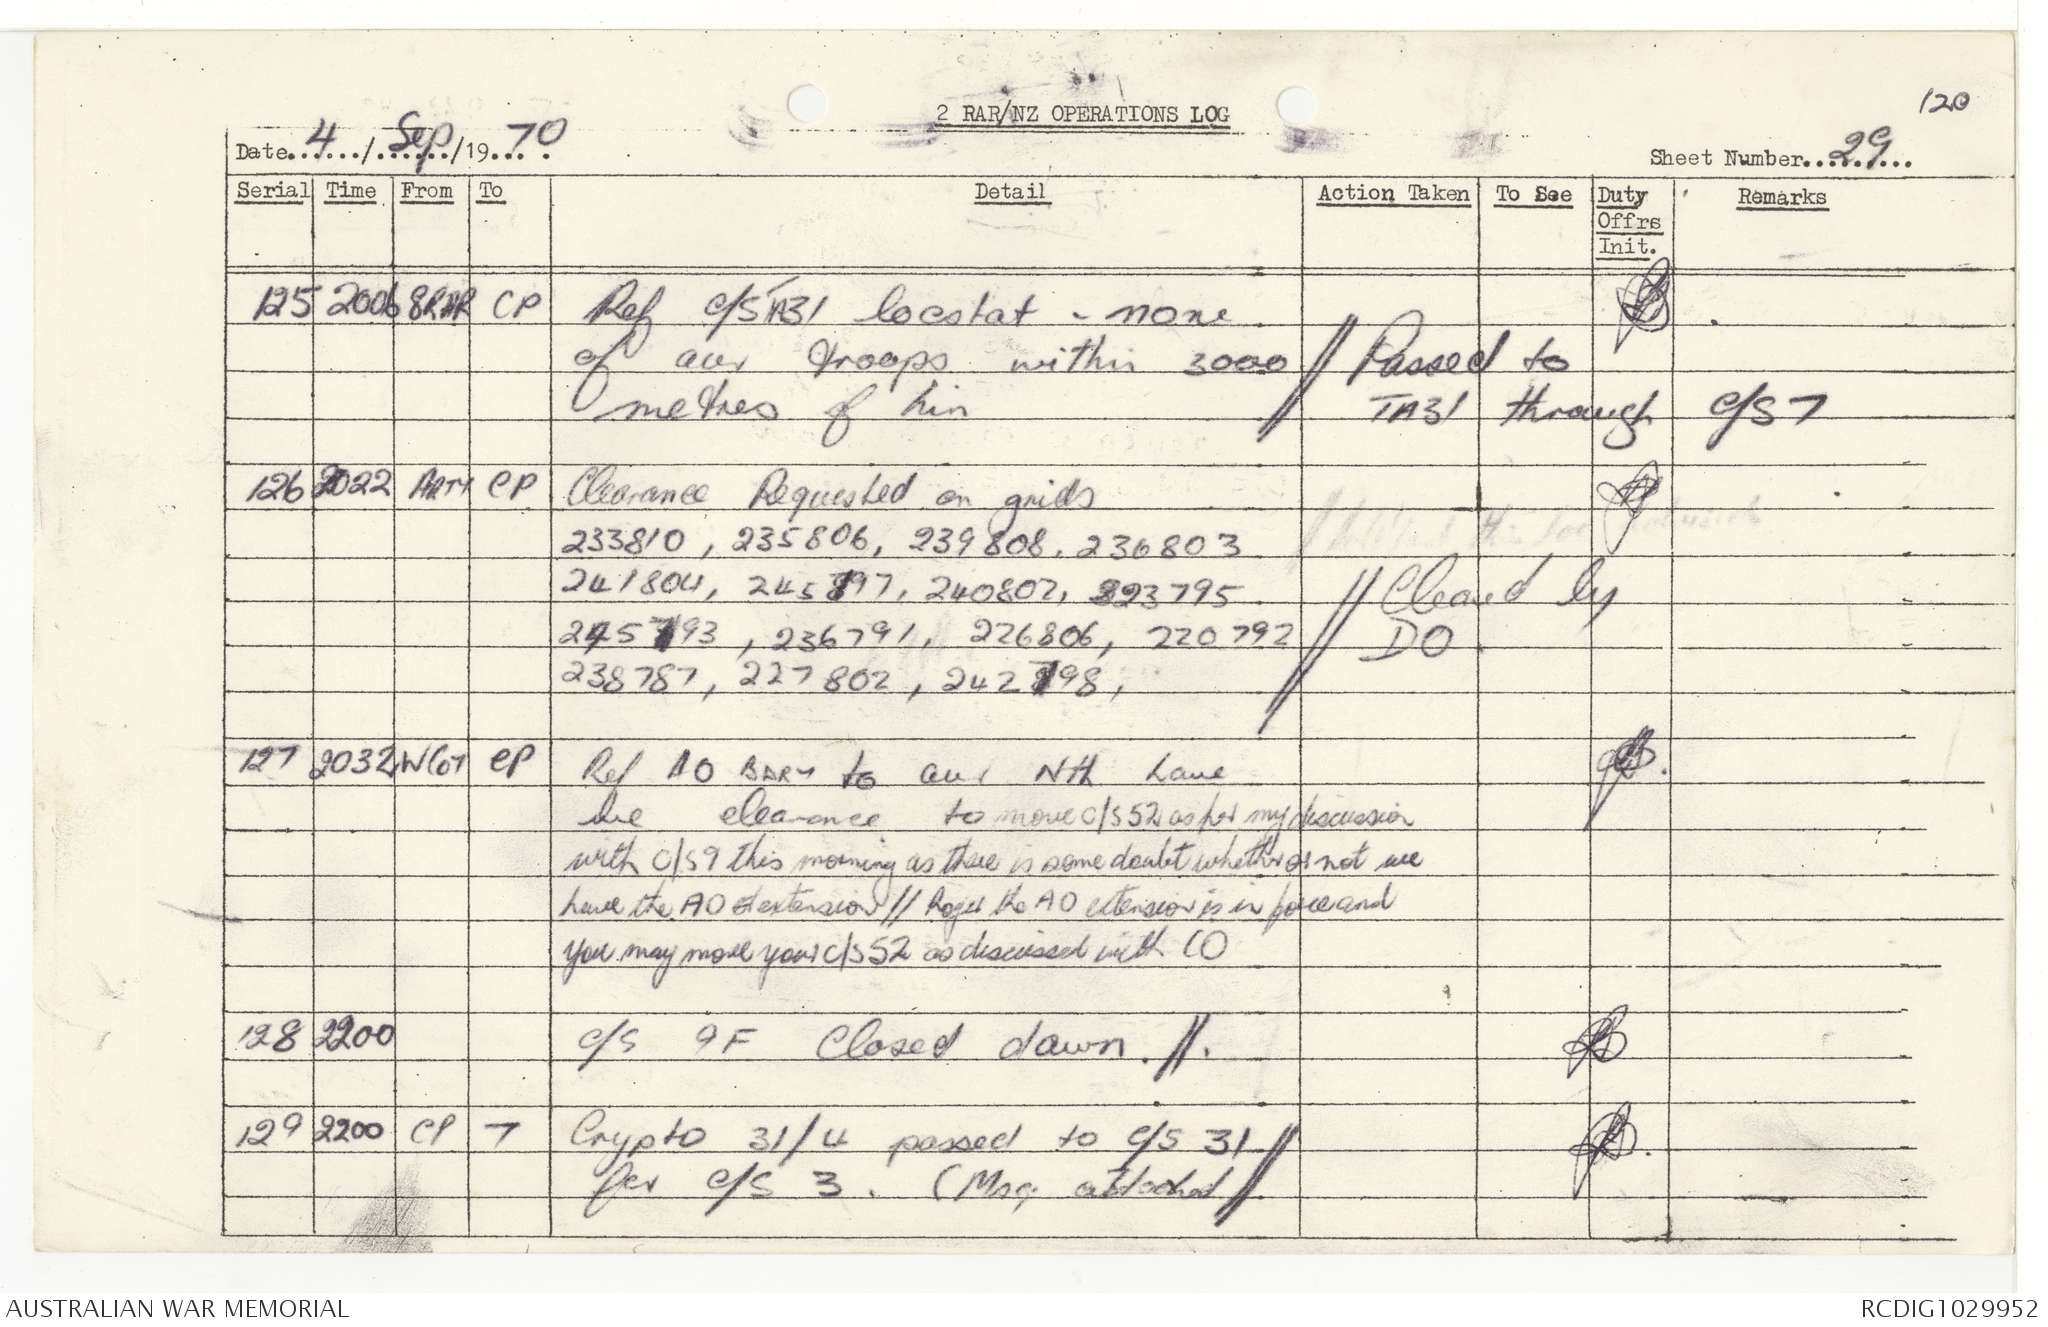 120
2 RAR/NZ OPERATIONS LOG
Date 4 / Sep /19 70
Sheet Number 29
Serial Time From To Detail Action Taken To See Duty Offrs Init. Remarks
125 2006 8RAR CP Ref c/s TA31 locstat - none
of our troops within 3000 // Passed to
metres of him TA31 through c/s 7
126 2022 ARTY CP Clearance Requested on grids
233810, 235806, 239808, 236803
241804, 245797, 240802, 323795 // Cleared by
245793, 236791, 226806, 220792 DO
238787, 227802, 242798,
127 2032 CP Ref AO BARY to our Nth have
we clearance to move c/s 52 as per my discussion
with c/s 9 this morning as there is some doubt whether or not we
have the AO extension // Roger the AO extension is in force and
you may move your c/s 52 as discussed with CO
128 2200 c/s 9F Closed down. //.
129 2200 CP 7 Crypto 31/4 passed to c/s 31 //
for c/s 3. (Msg attached
AUSTRALIAN WAR MEMORIAL
RCDIG1029952